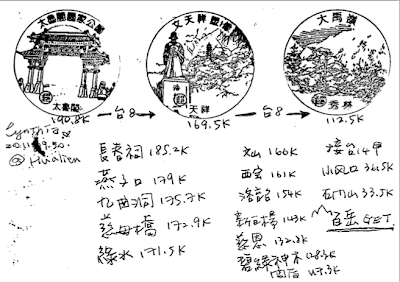 太魯閣國家公園
太魯閣
190.8K
台8
文天祥塑像
天祥
169.5K
台8
大禹嶺
秀林
112.5K
Cynthia
@ Hualien
長春祠 185.2K
燕子口 179K
九曲洞 175.7K
慈母橋 172.9K
綠水 171.5K
文山 166K
西寶 161K
洛韶 154K
新白楊 143K
慈恩 132.3K
碧綠神木 128.3K
關原 117.3K
接台14甲
小風口 36.5K
石門山 33.5K
百岳 GET.